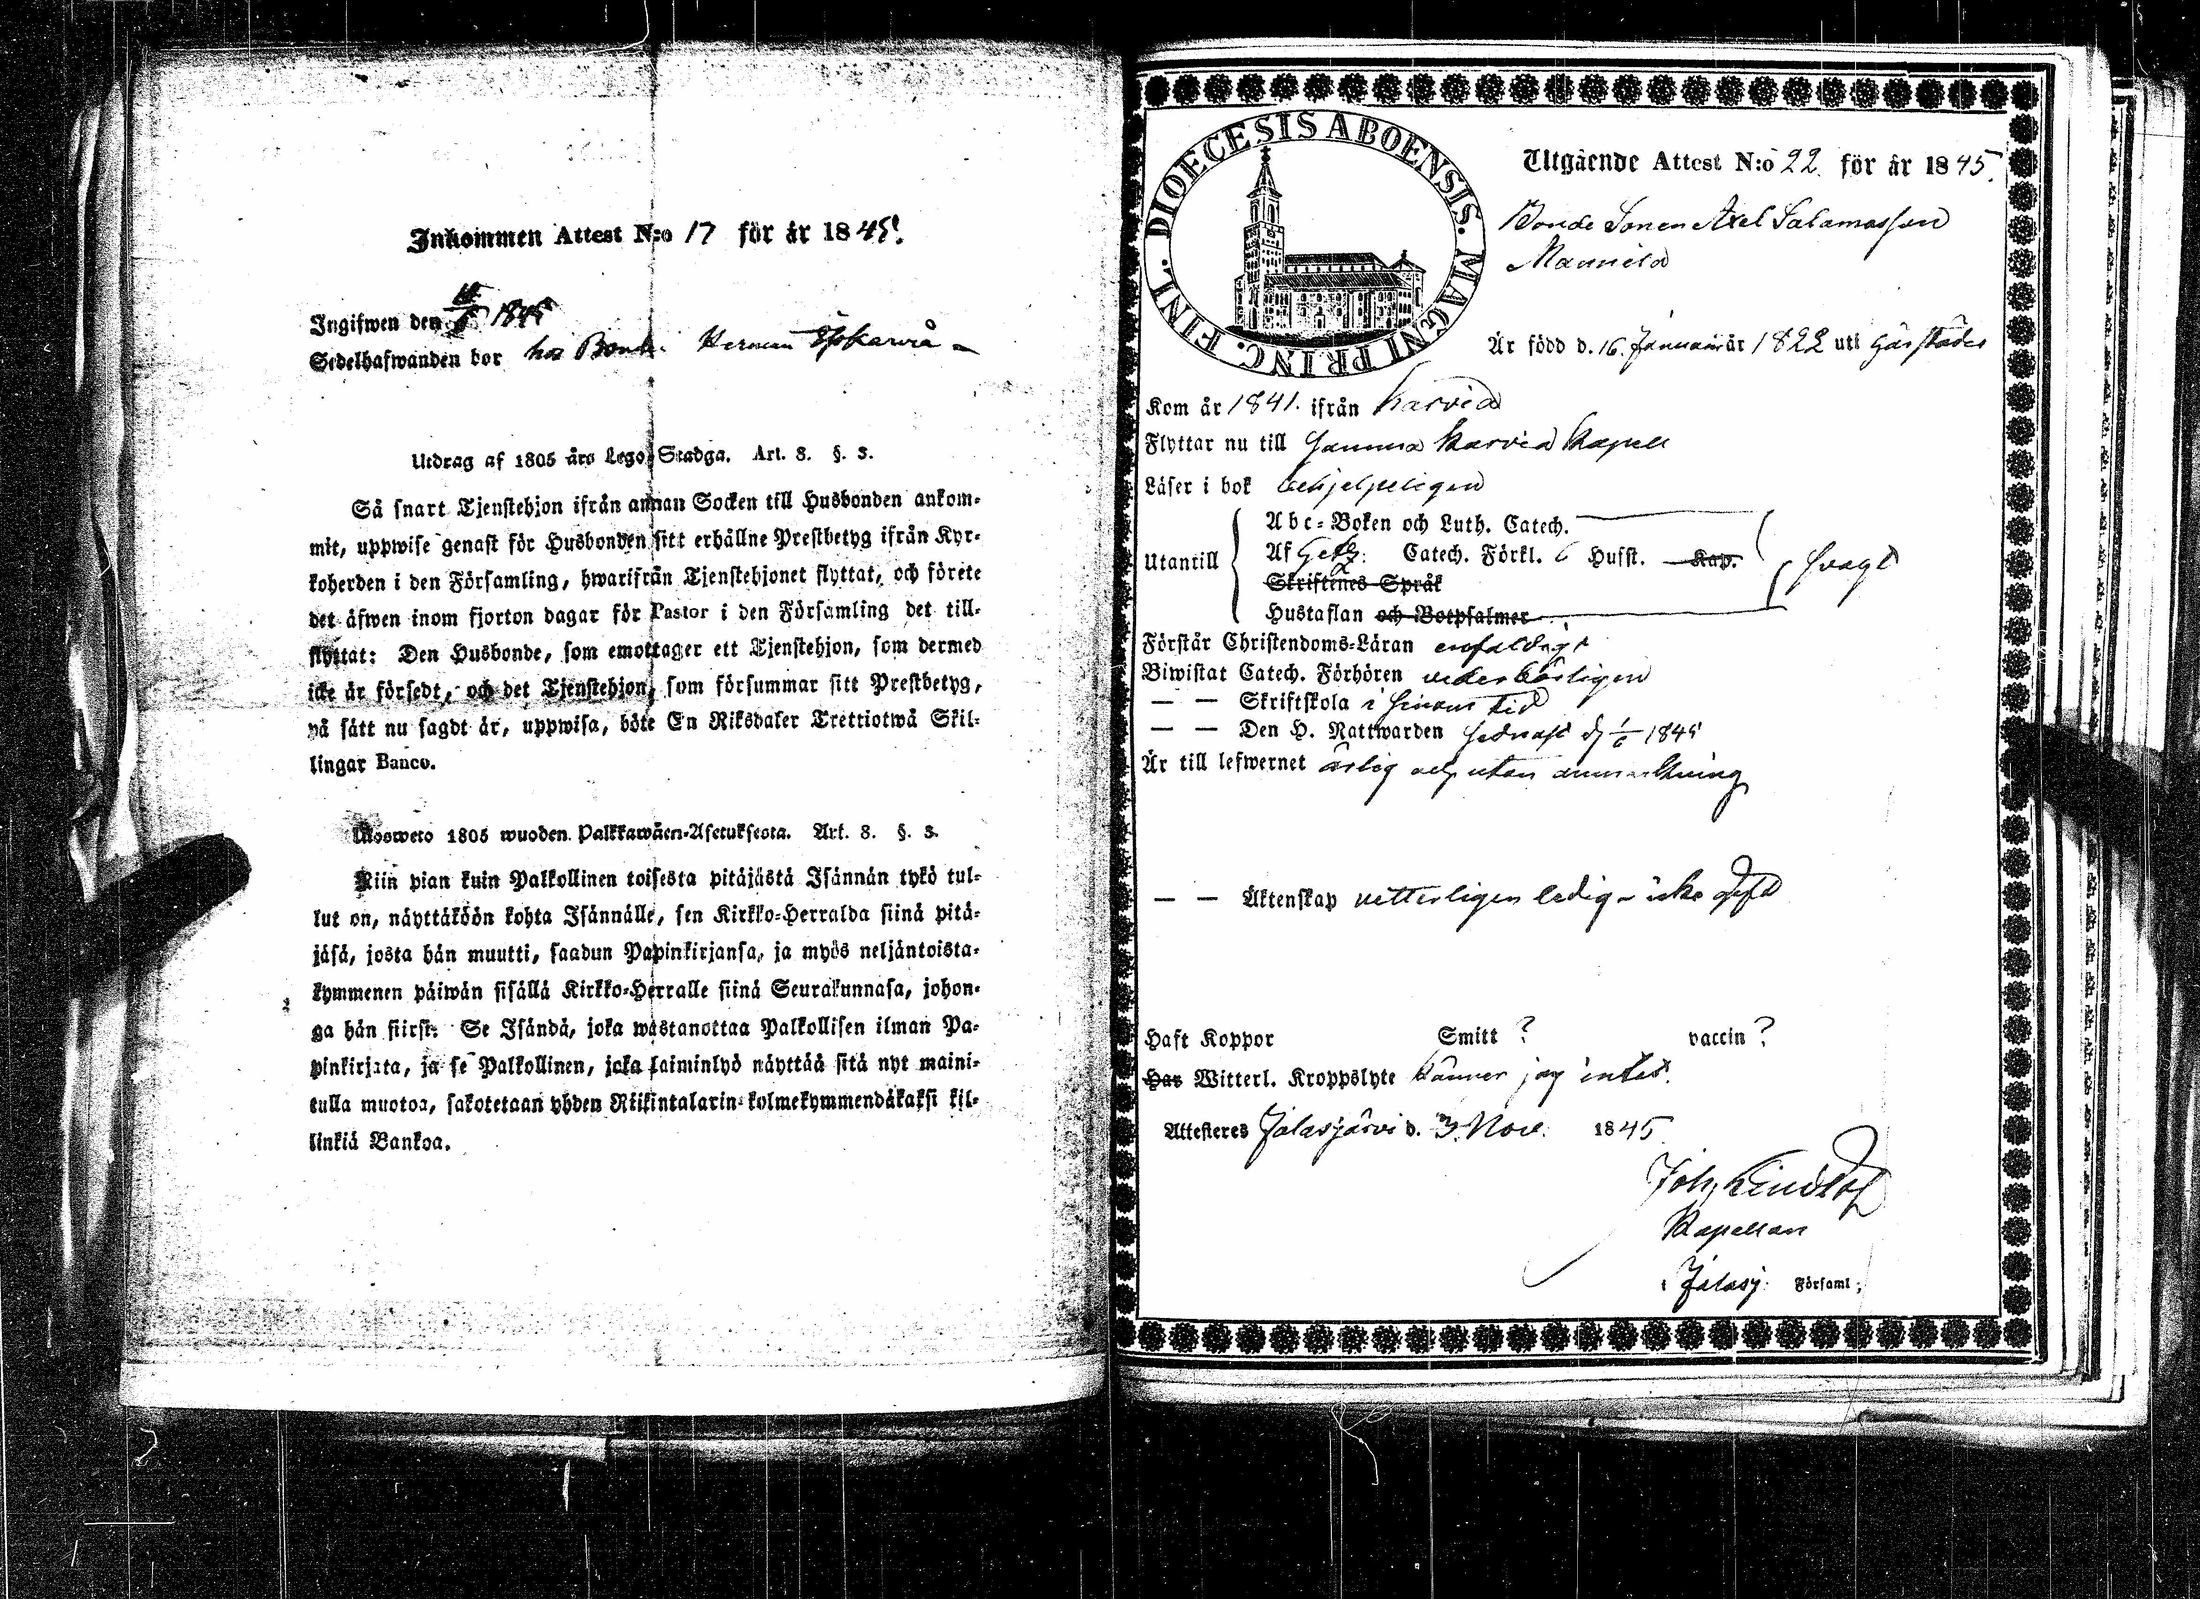 Inkommen Attest N:o 17 för år 1845.
Ingifwen den 1845
Sedelhafwanden bor hos Bonde Herman
Utdrag af 1805 års Lego-Stadga. Art. 8. §. 3.
Så snart Tjenstehjon ifrån annan Socken till Husbonden ankom-
mit, uppwise genast för Husbonden sitt erhållne Prestbetyg ifrån Kyr-
koherden i den Församling, hwarifrån Tjenstehjonet flyttat, och förete
det äfwen inom fjorton dagar för Pastor i den Församling det till-
flyttat: Den Husbonde, som emottager ett Tjenstehjon, som dermed
icke är försedt, och det Tjenstehjon, som försummar sitt Prestbetyg,
på sätt nu sagdt är, uppwisa, böte En Riksdaler Trettiotwå Skil-
lingar Banco.
Ulosweto 1805 wuoden Palkkawäen-Asetuksesta. Art. 8. §. 3.
Niin pian kuin Palkollinen toisesta pitäjästä Isännän tykö tul-
lut on, näyttäköön kohta Isännälle, sen Kirkko-Herralda siinä pitä-
jäsä, josta hän muutti, saadun Papinkirjansa, ja myös neljäntoista-
kymmenen päiwän sisällä Kirkko-Herralle siinä Seurakunnasa, johon-
ga hän siirsi: Se Isändä, joka wastanottaa Palkollisen ilman Pa-
pinkirjata, ja se Palkollinen, joka laiminlyö näyttää sitä nyt maini-
tulla muotoa, sakotetaan yhden Riikintalarin kolmekymmendäkaksi kil-
linkiä Bankoa.
DIOECESIS ABOENSIS. MAGNI PRINC. FINL.
Utgående Attest N:o 22 för år 1845.
Bonde Sonen Axel Salamosson
Mannila
Är född d. 16. Januari år 1822 uti
Kom år 1841. ifrån Karvia
Flyttar nu till samma Karvia Kapell
Läser i bok behjelpeligen
Utantill
Abc-Boken och Luth. Catech.
Af Catech. Förkl. 6 Husst. Kap.
Skriftines Språk
Hustaflan och Botpsalmer
svagt
Förstår Christendoms-Läran enfaldigt
Biwistat Catech. Förhören vederbörligen
— — Skriftskola i sinom tid
— — Den H. Nattwarden sednast d 1/6 1845
Är till lefwernet ärlig och utan anmärkning
— — Äktenskap vetterligen ledig
Haft Koppor Smitt ? vaccin ?
Har Witterl. Kroppslyte känner jag intet.
Attesteres Jalasjärvi d. 3. Nov. 1845
Joh. Lindlöf
Kapellan
i Jalasj: Församl;